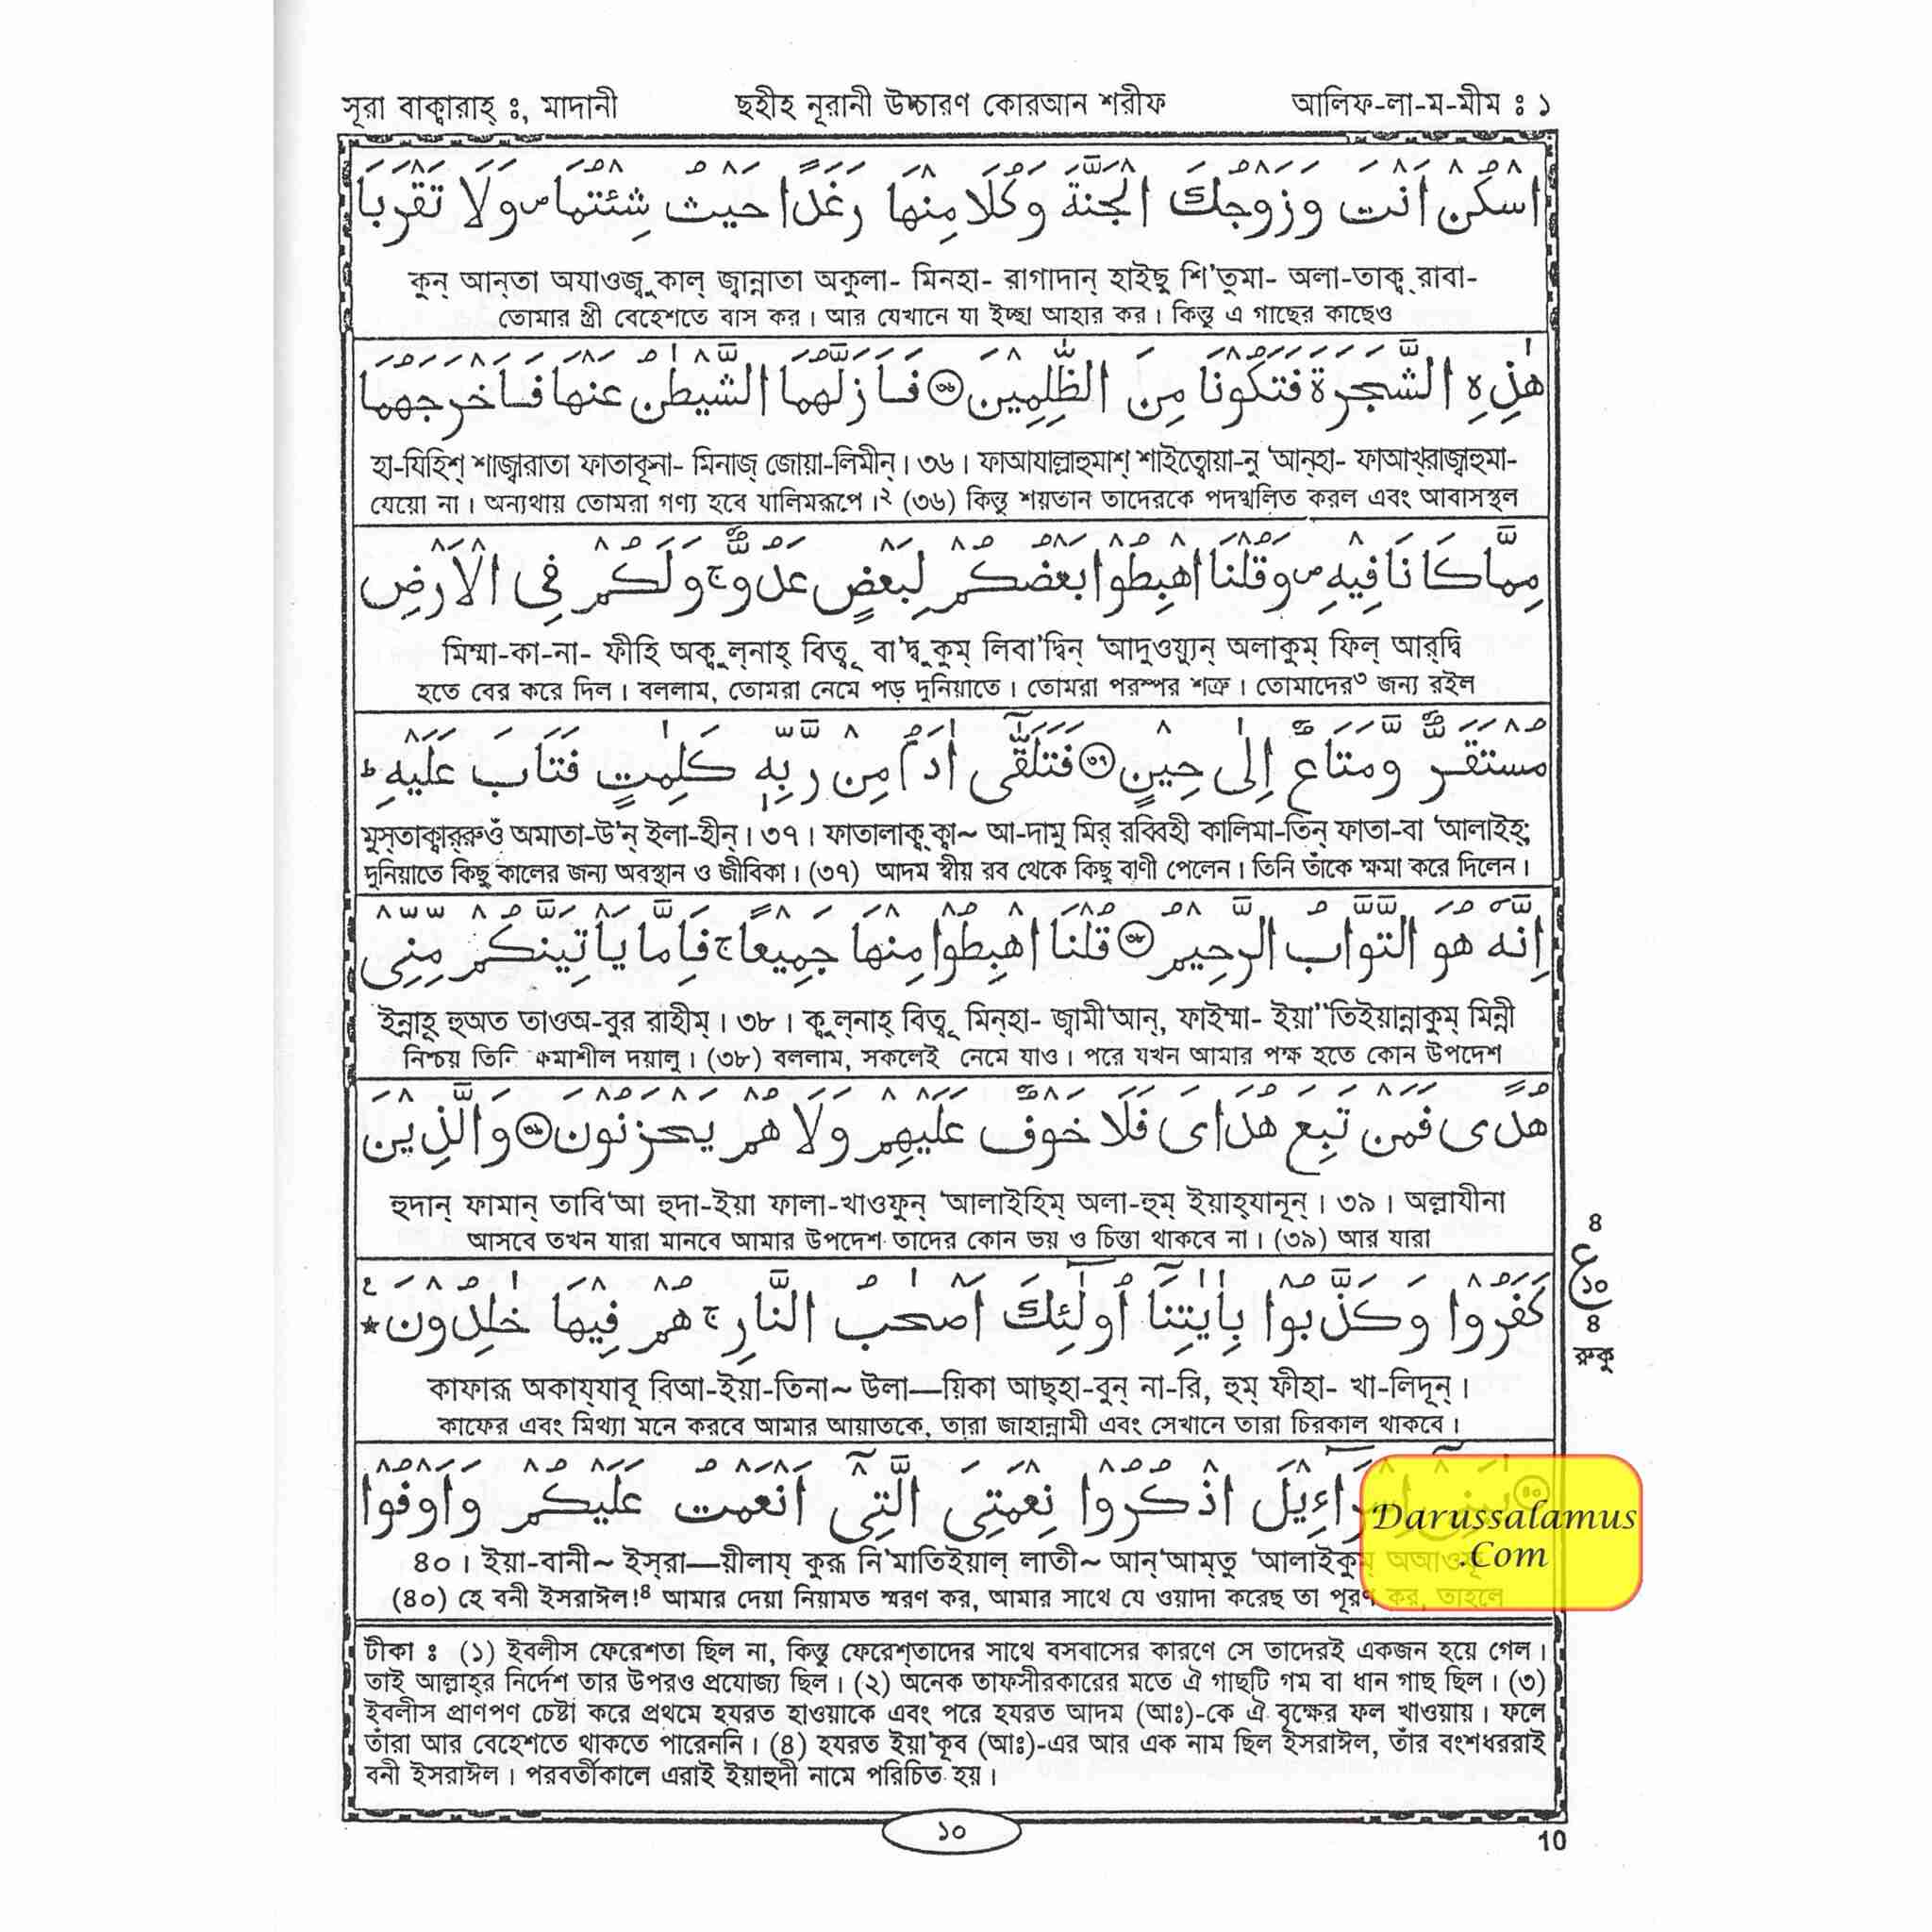 সূরা বাক্বারাহ্ ঃ, মাদানী ছহীহ নূরানী উচ্চারণ কোরআন শরীফ আলিফ-লা-ম-মীম ঃ ১
اسْكُنْ اَنْتَ وَزَوْجُكَ الْجَنَّةَ وَكُلَا مِنْهَا رَغَدًا حَيْثُ شِئْتُمَا ص وَلَا تَقْرَبَا
কুন্ আন্‌তা অযাওজ্বুকাল্ জ্বান্নাতা অকুলা- মিনহা- রাগাদান্ হাইছু শি'তুমা- অলা-তাক্ব্‌রাবা-
তোমার স্ত্রী বেহেশতে বাস কর। আর যেখানে যা ইচ্ছা আহার কর। কিন্তু এ গাছের কাছেও
هٰذِهِ الشَّجَرَةَ فَتَكُوْنَا مِنَ الظّٰلِمِيْنَ ۝٣٥ فَاَزَلَّهُمَا الشَّيْطٰنُ عَنْهَا فَاَخْرَجَهُمَا
হা-যিহিশ্ শাজ্বারাতা ফাতাকূনা- মিনাজ্ জোয়া-লিমীন্। ৩৬। ফাআযাল্লাহুমাশ্ শাইত্বোয়া-নু 'আন্‌হা- ফাআখ্‌রাজ্বাহুমা-
যেয়ো না। অন্যথায় তোমরা গণ্য হবে যালিমরূপে।২ (৩৬) কিন্তু শয়তান তাদেরকে পদস্খলিত করল এবং আবাসস্থল
مِمَّا كَانَا فِيْهِ ص وَقُلْنَا اهْبِطُوْا بَعْضُكُمْ لِبَعْضٍ عَدُوٌّ ج وَلَكُمْ فِى الْاَرْضِ
মিম্মা-কা-না- ফীহি অক্বুল্‌নাহ্ বিত্বূ বা'দ্বুকুম্ লিবা'দ্বিন্ 'আদুওয়্যুন্ অলাকুম্ ফিল্ আর্‌দ্বি
হতে বের করে দিল। বললাম, তোমরা নেমে পড় দুনিয়াতে। তোমরা পরস্পর শত্রু। তোমাদের৩ জন্য রইল
مُسْتَقَرٌّ وَّمَتَاعٌ اِلٰى حِيْنٍ ۝٣٦ فَتَلَقّٰٓى اٰدَمُ مِنْ رَّبِّهٖ كَلِمٰتٍ فَتَابَ عَلَيْهِ ط
মুস্‌তাক্বার্‌রুওঁ অমাতা-উ'ন্ ইলা-হীন্। ৩৭। ফাতালাক্ব্‌ক্বা~ আ-দামু মির্ রব্বিহী কালিমা-তিন্ ফাতা-বা 'আলাইহ্;
দুনিয়াতে কিছু কালের জন্য অবস্থান ও জীবিকা। (৩৭) আদম স্বীয় রব থেকে কিছু বাণী পেলেন। তিনি তাঁকে ক্ষমা করে দিলেন।
اِنَّهٗ هُوَ التَّوَّابُ الرَّحِيْمُ ۝٣٧ قُلْنَا اهْبِطُوْا مِنْهَا جَمِيْعًا ج فَاِمَّا يَاْتِيَنَّكُمْ مِّنِّى
ইন্নাহূ হুঅত তাওঅ-বুর রাহীম্। ৩৮। ক্বুল্‌নাহ্ বিত্বূ মিন্‌হা- জ্বামী'আন্, ফাইম্মা- ইয়া''তিইয়ান্নাকুম্ মিন্নী
নিশ্চয় তিনি ক্ষমাশীল দয়ালু। (৩৮) বললাম, সকলেই নেমে যাও। পরে যখন আমার পক্ষ হতে কোন উপদেশ
هُدًى فَمَنْ تَبِعَ هُدَاىَ فَلَا خَوْفٌ عَلَيْهِمْ وَلَا هُمْ يَحْزَنُوْنَ ۝٣٨ وَالَّذِيْنَ
হুদান্ ফামান্ তাবি'আ হুদা-ইয়া ফালা-খাওফুন্ 'আলাইহিম্ অলা-হুম্ ইয়াহ্‌যানূন্। ৩৯। অল্লাযীনা
আসবে তখন যারা মানবে আমার উপদেশ তাদের কোন ভয় ও চিন্তা থাকবে না। (৩৯) আর যারা
كَفَرُوْا وَكَذَّبُوْا بِاٰيٰتِنَآ اُولٰٓئِكَ اَصْحٰبُ النَّارِ ج هُمْ فِيْهَا خٰلِدُوْنَ ع
৪
ع
১০
৪
রুকু
কাফারূ অকায্‌যাবূ বিআ-ইয়া-তিনা~ উলা—য়িকা আছ্‌হা-বুন্ না-রি, হুম্ ফীহা- খা-লিদূন্।
কাফের এবং মিথ্যা মনে করবে আমার আয়াতকে, তারা জাহান্নামী এবং সেখানে তারা চিরকাল থাকবে।
يٰبَنِىْٓ اِسْرَآءِيْلَ اذْكُرُوْا نِعْمَتِىَ الَّتِىْٓ اَنْعَمْتُ عَلَيْكُمْ وَاَوْفُوْا
Darussalamus
.Com
৪০। ইয়া-বানী~ ইস্‌রা—য়ীলায্ কুরূ নি'মাতিইয়াল্ লাতী~ আন্'আম্‌তু 'আলাইকুম্ অআওফূ
(৪০) হে বনী ইসরাঈল!৪ আমার দেয়া নিয়ামত স্মরণ কর, আমার সাথে যে ওয়াদা করেছ তা পূরণ কর, তাহলে
টীকা ঃ (১) ইবলীস ফেরেশতা ছিল না, কিন্তু ফেরেশ্‌তাদের সাথে বসবাসের কারণে সে তাদেরই একজন হয়ে গেল।
তাই আল্লাহ্‌র নির্দেশ তার উপরও প্রযোজ্য ছিল। (২) অনেক তাফসীরকারের মতে ঐ গাছটি গম বা ধান গাছ ছিল। (৩)
ইবলীস প্রাণপণ চেষ্টা করে প্রথমে হযরত হাওয়াকে এবং পরে হযরত আদম (আঃ)-কে ঐ বৃক্ষের ফল খাওয়ায়। ফলে
তাঁরা আর বেহেশতে থাকতে পারেননি। (৪) হযরত ইয়া'কূব (আঃ)-এর আর এক নাম ছিল ইসরাঈল, তাঁর বংশধররাই
বনী ইসরাঈল। পরবর্তীকালে এরাই ইয়াহুদী নামে পরিচিত হয়।
১০
10